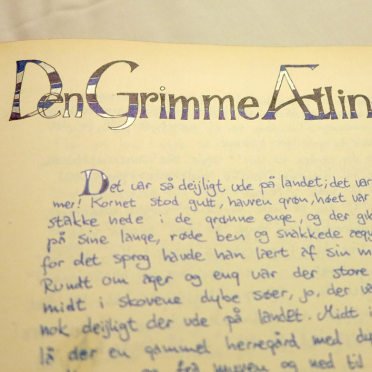 Den Grimme Ætlin
Det var så dejligt ude på landet; det var
mer! Kornet stod gult, havren grøn, høet var
stakke nede i de grønne enge, og der gik
på sine lange, røde ben og snakkede ægy
for det sprog havde han lært af sin m
Rundt om ager og eng var der store
midt i skovene dybe søer, jo, der va
nok dejligt der ude på landet. Midt i
lå der en gammel herregård med dy
og fra muren og ned til